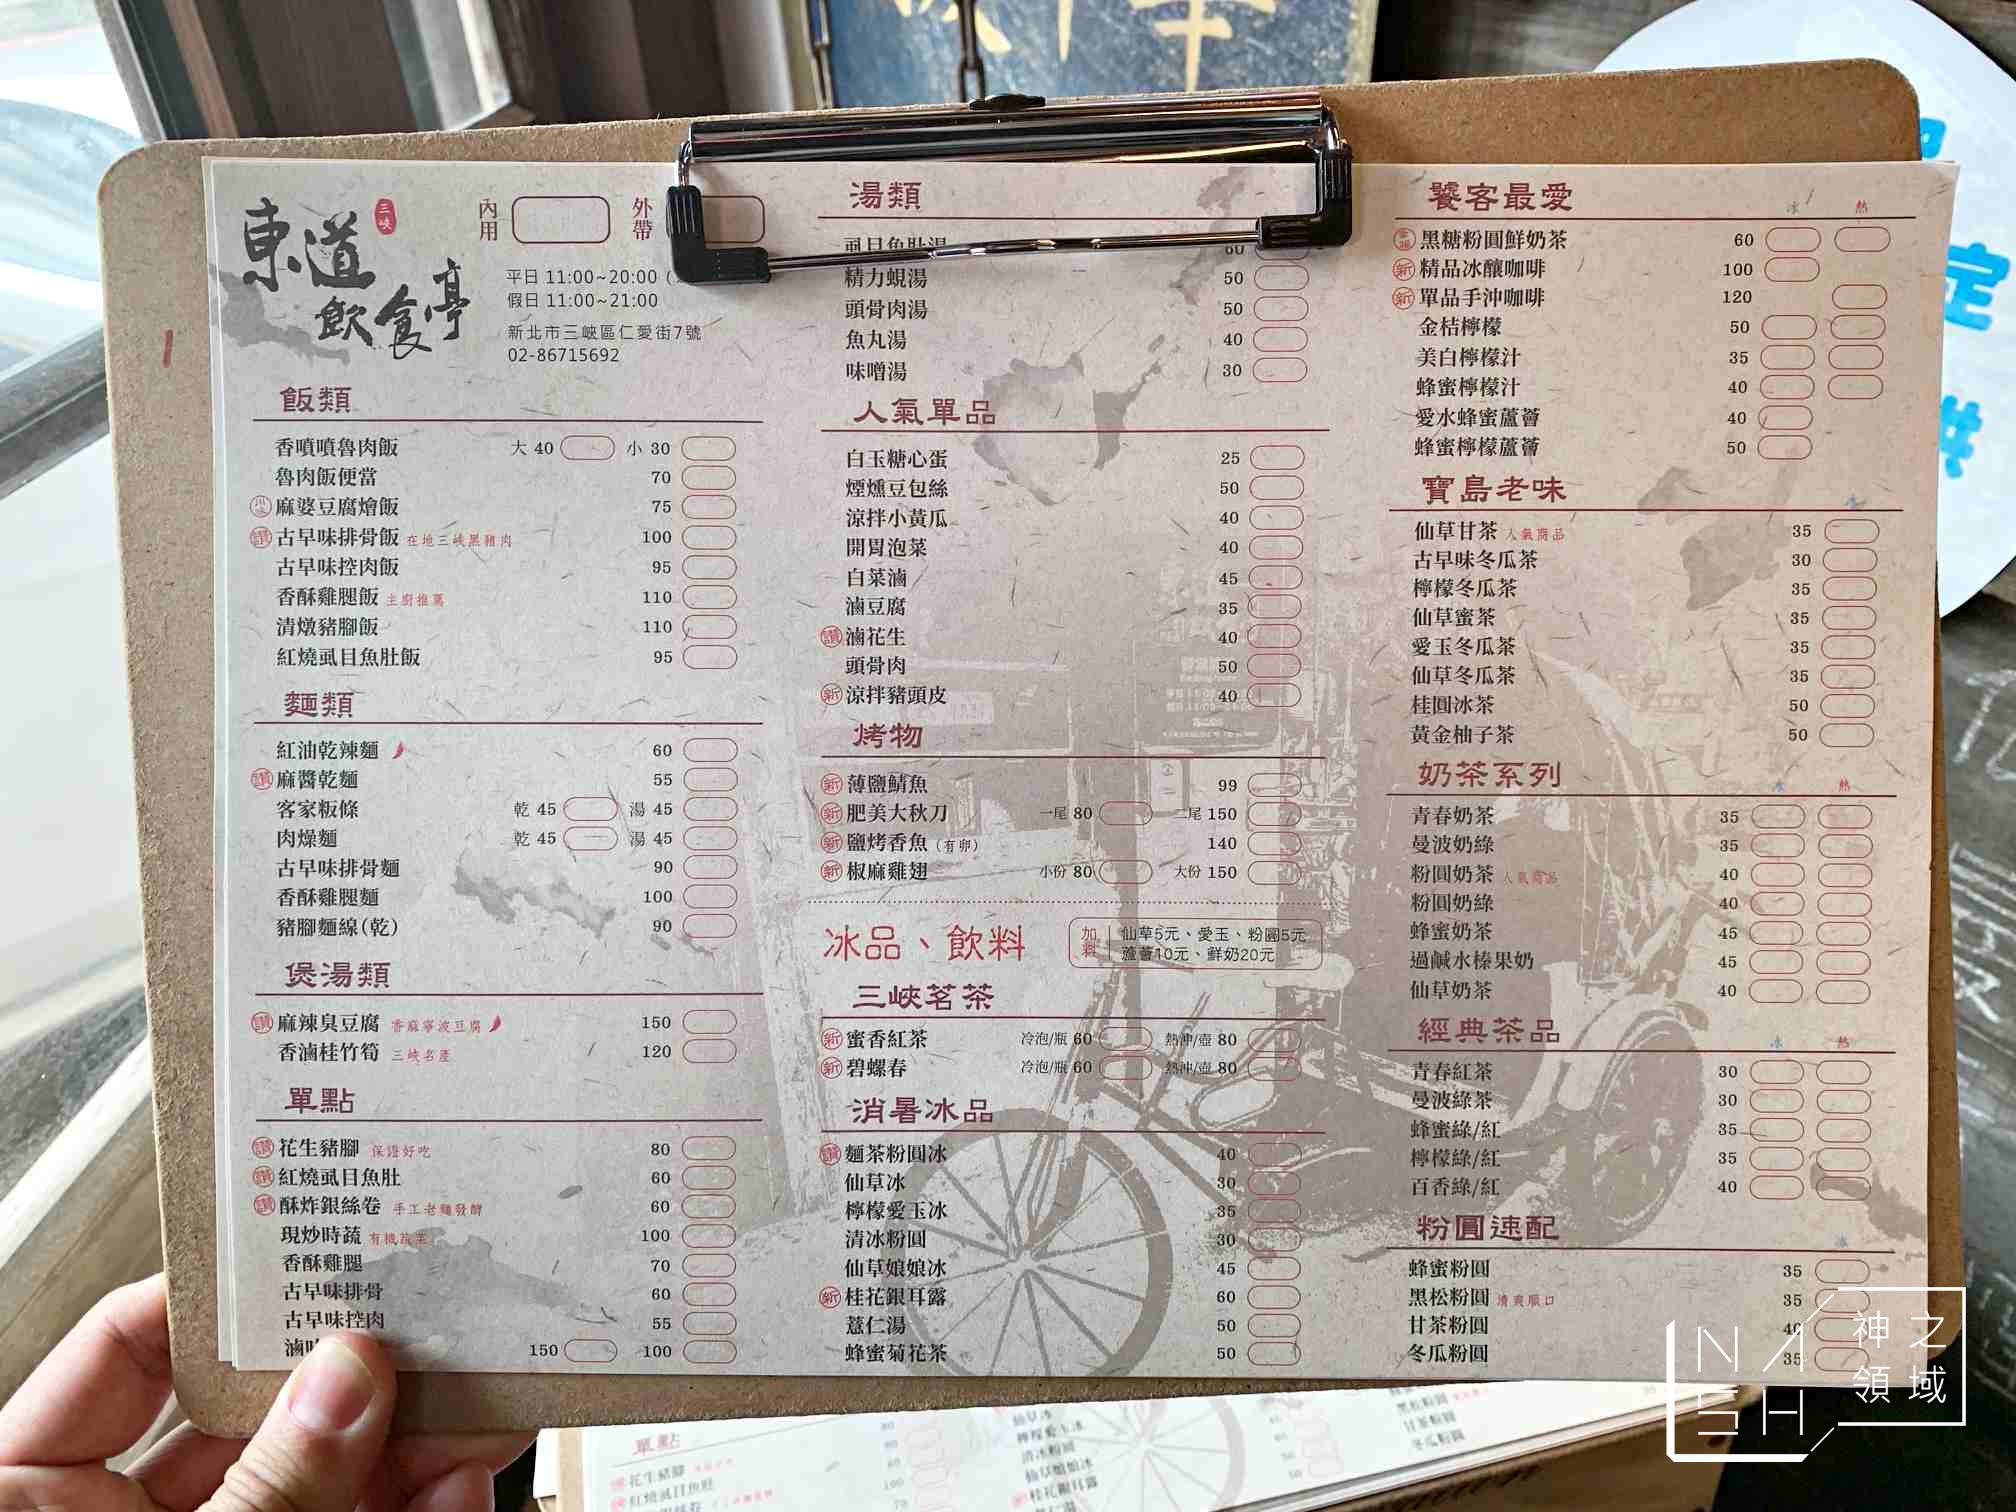 東道
飲食亭
三峽
內用
外帶
平日 11:00~20:00 (
假日 11:00~21:00
新北市三峽區仁愛街7號
02-86715692
飯類
香噴噴魯肉飯 大 40 小 30
魯肉飯便當 70
麻婆豆腐燴飯 75
讚 古早味排骨飯 在地三峽黑豬肉 100
古早味控肉飯 95
香酥雞腿飯 主廚推薦 110
清燉豬腳飯 110
紅燒虱目魚肚飯 95
麵類
紅油乾辣麵 60
讚 麻醬乾麵 55
客家粄條 乾 45 湯 45
肉燥麵 乾 45 湯 45
古早味排骨麵 90
香酥雞腿麵 100
豬腳麵線(乾) 90
煲湯類
讚 麻辣臭豆腐 香麻寧波豆腐 150
香滷桂竹筍 三峽名產 120
單點
讚 花生豬腳 保證好吃 80
讚 紅燒虱目魚肚 60
讚 酥炸銀絲卷 手工老麵發酵 60
現炒時蔬 有機蔬菜 100
香酥雞腿 70
古早味排骨 60
古早味控肉 55
滷 150 100
湯類
虱目魚肚湯 60
精力蜆湯 50
頭骨肉湯 50
魚丸湯 40
味噌湯 30
人氣單品
白玉糖心蛋 25
煙燻豆包絲 50
涼拌小黃瓜 40
開胃泡菜 40
白菜滷 45
滷豆腐 35
讚 滷花生 40
頭骨肉 50
新 涼拌豬頭皮 40
烤物
新 薄鹽鯖魚 99
新 肥美大秋刀 一尾 80 二尾 150
新 鹽烤香魚(有卵) 140
新 椒麻雞翅 小份 80 大份 150
冰品、飲料
加料 仙草5元、愛玉、粉圓5元
蘆薈10元、鮮奶20元
三峽茗茶
新 蜜香紅茶 冷泡/瓶 60 熱沖/壺 80
新 碧螺春 冷泡/瓶 60 熱沖/壺 80
消暑冰品
讚 麵茶粉圓冰 40
仙草冰 30
檸檬愛玉冰 35
清冰粉圓 30
仙草娘娘冰 45
新 桂花銀耳露 60
薏仁湯 50
蜂蜜菊花茶 50
饕客最愛
冰 熱
黑糖粉圓鮮奶茶 60
新 精品冰釀咖啡 100
新 單品手沖咖啡 120
金桔檸檬 50
美白檸檬汁 35
蜂蜜檸檬汁 40
愛水蜂蜜蘆薈 40
蜂蜜檸檬蘆薈 50
寶島老味
冰
仙草甘茶 人氣商品 35
古早味冬瓜茶 30
檸檬冬瓜茶 35
仙草蜜茶 35
愛玉冬瓜茶 35
仙草冬瓜茶 35
桂圓冰茶 50
黃金柚子茶 50
奶茶系列
冰 熱
青春奶茶 35
曼波奶綠 35
粉圓奶茶 人氣商品 40
粉圓奶綠 40
蜂蜜奶茶 45
過鹹水榛果奶 45
仙草奶茶 40
經典茶品
冰 熱
青春紅茶 30
曼波綠茶 30
蜂蜜綠/紅 35
檸檬綠/紅 35
百香綠/紅 40
粉圓速配
冰
蜂蜜粉圓 35
黑松粉圓 清爽順口 35
甘茶粉圓 40
冬瓜粉圓 35
單點
花生豬腳
紅燒虱目魚肚
仙草冰
檸檬愛玉冰
清冰粉圓
仙草娘娘冰
桂花銀耳露
黑松粉圓
甘茶粉圓
冬瓜粉圓
NASH
神之領域
定